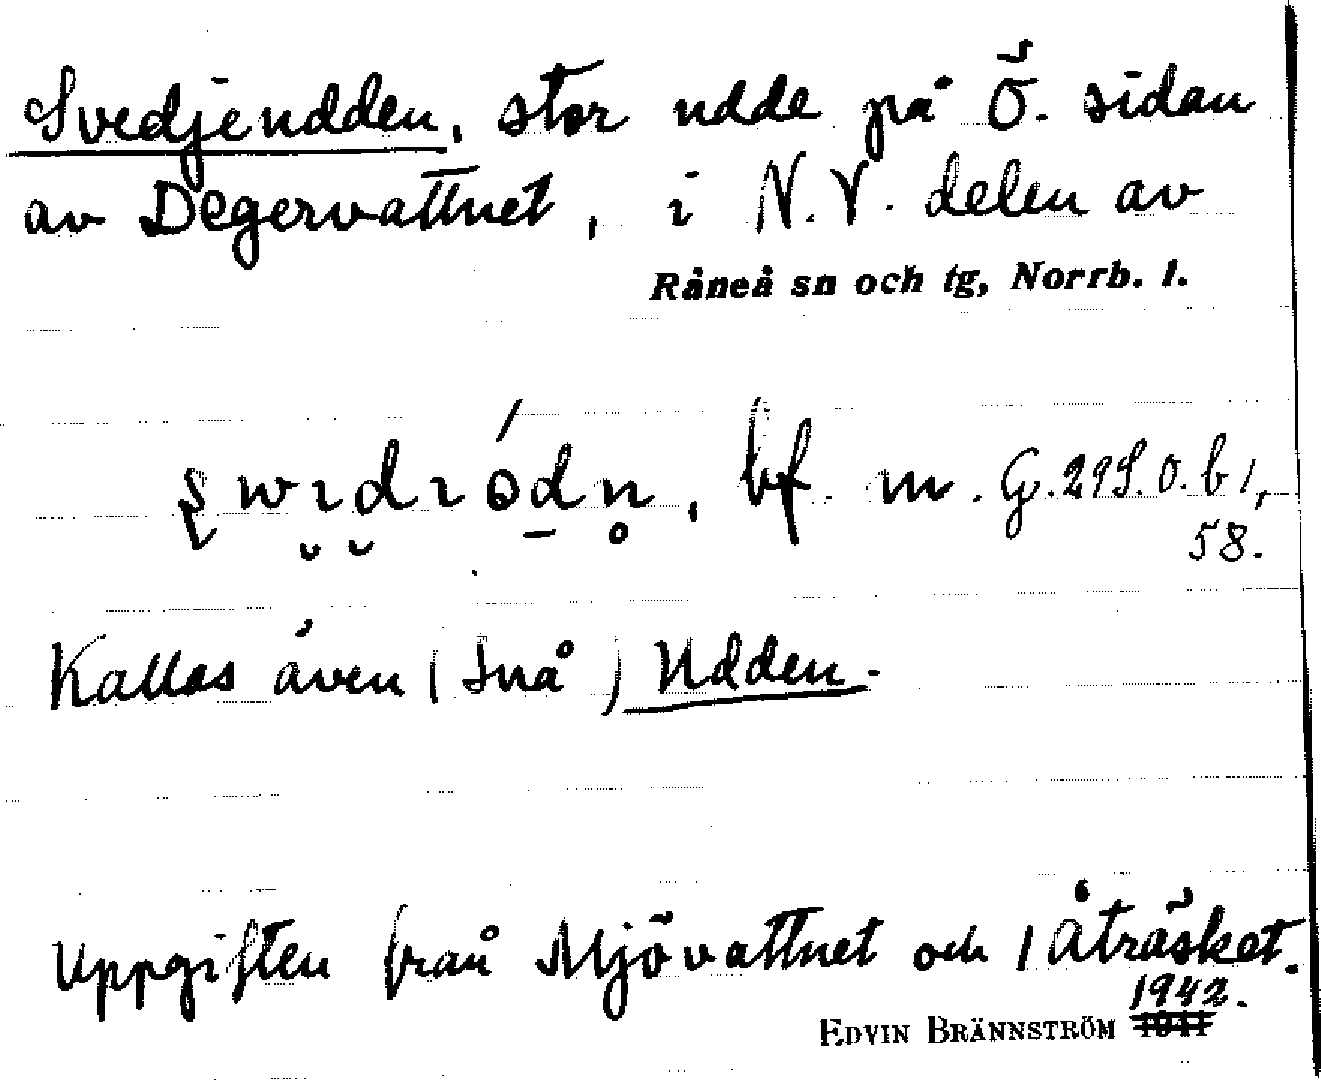 Svedjeudden, stor udde på Ö. sidan
av Degervattnet, i N.V. delen av
Råneå sn och tg, Norrb. l.
bf. m. G. 298. o. b 1,
58.
Kallas även (Små) Udden.
Uppgiften från Mjövattnet och Åträsket.
1942.
EDVIN BRÄNNSTRÖM 1941